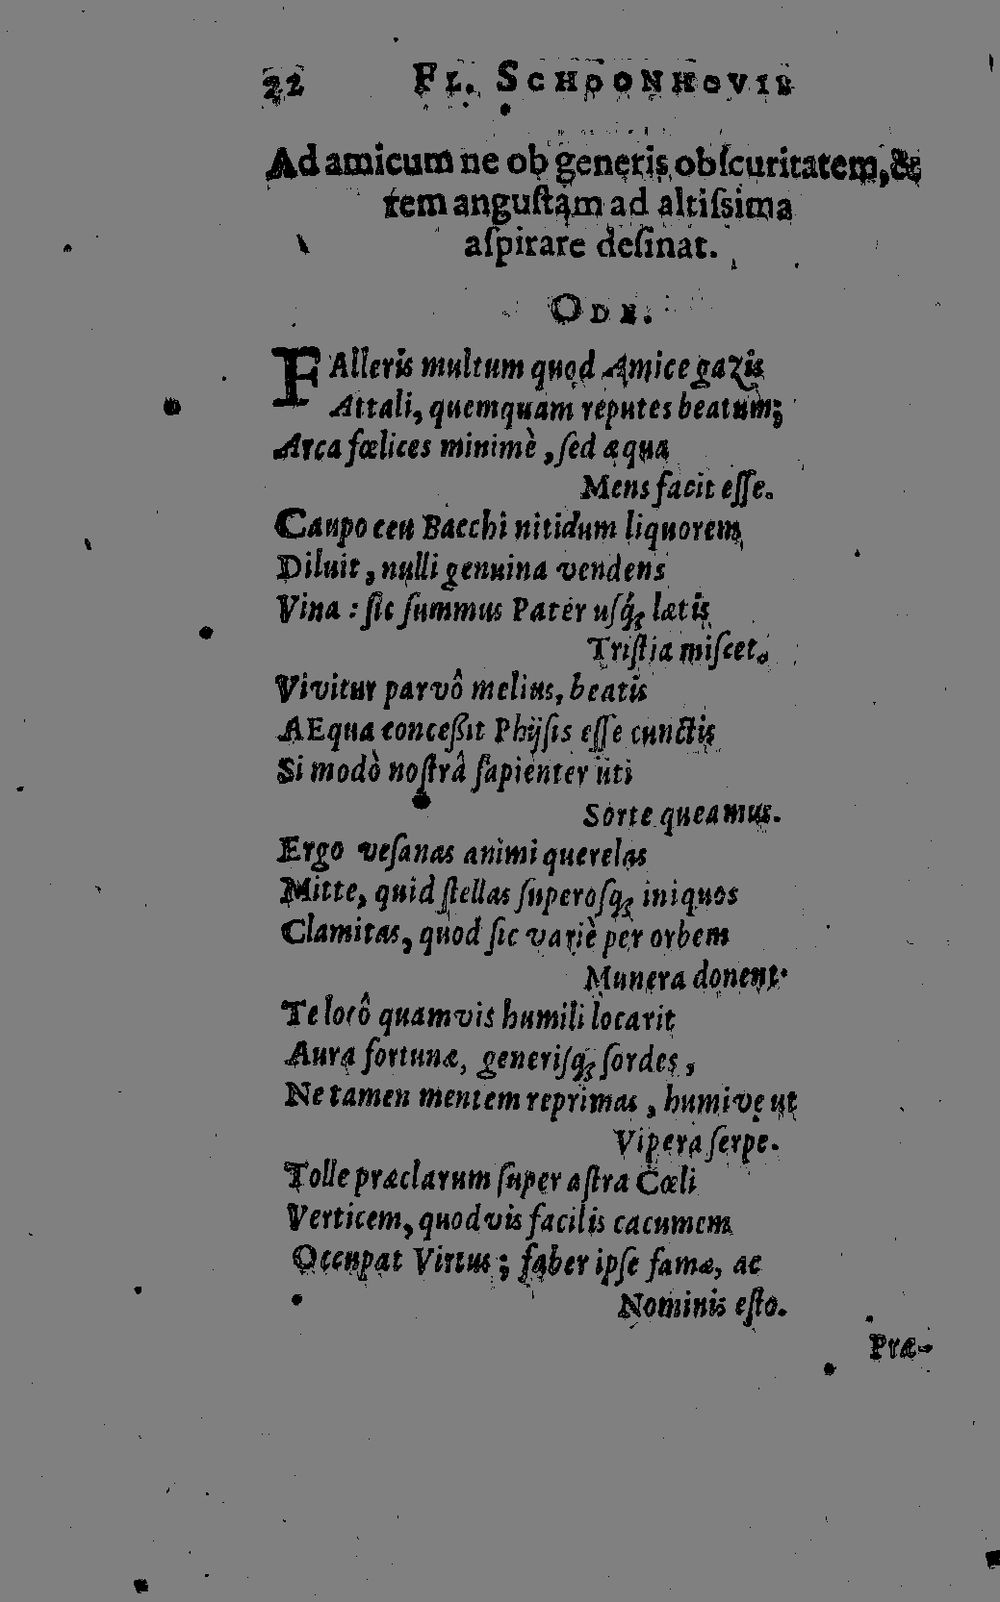 22 FL. SCHOONHOVII
Ad amicum ne ob generis obſcuritatem, &
rem anguſtam ad altiſsima
aſpirare deſinat.
ODE.
FAlleris multum quod Amice gazis
Attali, quemquam reputes beatum;
Arca fœlices minimè, ſed æqua
Mens facit eſſe.
Caupo ceu Bacchi nitidum liquorem
Diluit, nulli genuina vendens
Vina: ſic ſummus Pater uſq́; lætis
Triſtia miſcet.
Vivitur parvô melius, beatis
AEqua conceßit Phÿſis eſſe cunctis
Si modò noſtrâ ſapienter uti
Sorte queamus.
Ergo veſanas animi querelas
Mitte, quid ſtellas ſuperoſq; iniquos
Clamitas, quod ſic variè per orbem
Munera donent.
Te locô quamvis humili locarit
Aura fortunæ, generiſq; ſordes,
Ne tamen mentem reprimas, humive ut
Vipera ſerpe.
Tolle præclarum ſuper aſtra Cœli
Verticem, quodvis facilis cacumem
Occupat Virtus; faber ipſe famæ, ac
Nominis eſto.
Præ-